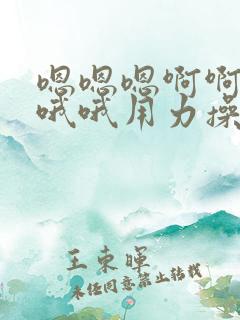 嗯嗯嗯啊啊
哦哦用力操
王东晖
未经同意禁止转载